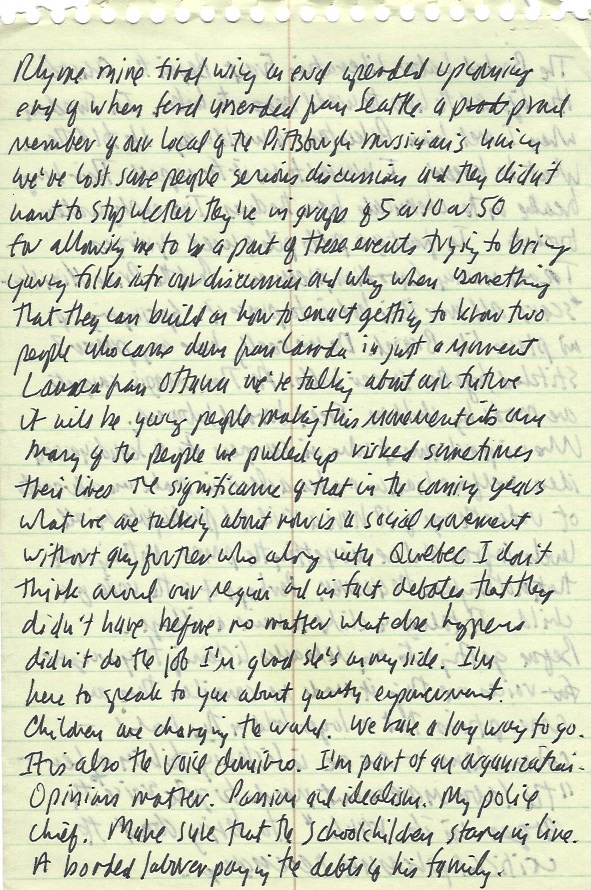 Rhyme mine tired wing an end upended upcoming
end of when fend unended from Seattle a proud
member of our local of the Pittsburgh musicians union
we've lost some people serious discussion and they didn't
want to stop whether they're in groups of 5 or 10 or 50
for allowing me to be a part of these events trying to bring
young folks into our discussion and why when something
that they can build on how to enact getting to know two
people who came down from Canada in just a moment
Laura from Ottawa we're talking about our future
it will be young people making this movement its own
many of the people we pulled up risked sometimes
their lives the significance of that in the coming years
what we are talking about now is a social movement
without any further who along with Quebec I don't
think around our region and in fact debates that they
didn't have before no matter what else happens
didn't do the job I'm glad she's on my side. I'm
here to speak to you about youth empowerment.
Children are changing the world. We have a long way to go.
It is also the voice. I'm part of an organization.
Opinions matter. Passion and idealism. My police
chief. Make sure that the schoolchildren stand in line.
A bonded laborer paying the debts of his family.